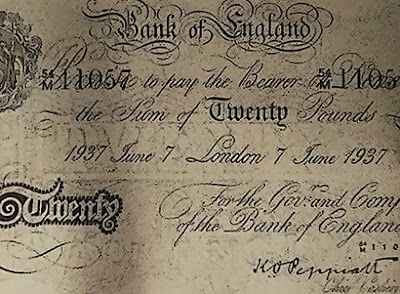 Bank of England
54/M 11057 to pay the Bearer on 54/M 1105
the Sum of Twenty Pounds
1937 June 7 London 7 June 1937
Twenty
For the Gov.r and Comp
of the Bank of England
54/M 110
K.O. Peppiatt
Chief Cashier